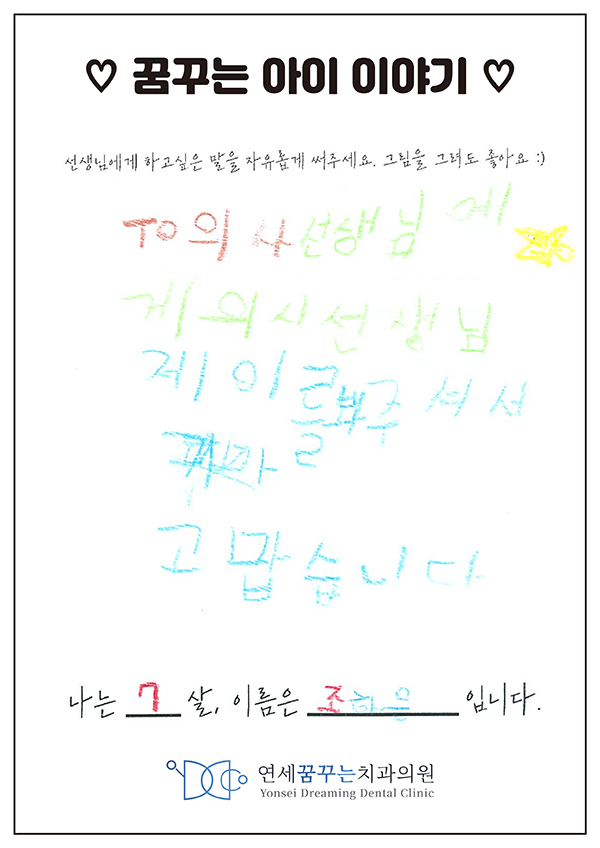 ♡ 꿈꾸는 아이 이야기 ♡
선생님에게 하고싶은 말을 자유롭게 써주세요. 그림을 그려도 좋아요 :)
TO의 사선생님 에
게 의사선생님
제 이를 빼주셔서
고맙습니다
나는 7 살, 이름은 조하은 입니다.
연세꿈꾸는치과의원
Yonsei Dreaming Dental Clinic